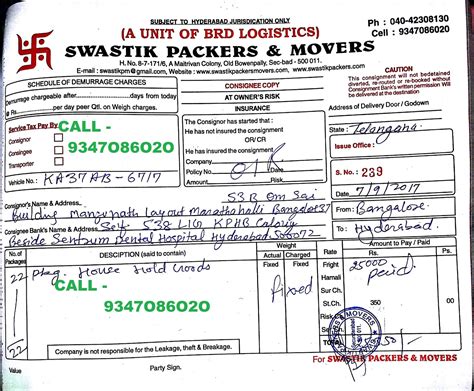 SUBJECT TO HYDERABAD JURISDICATION ONLY
Ph : 040-42308130
Cell : 9347086020
(A UNIT OF BRD LOGISTICS)
SWASTIK PACKERS & MOVERS
H. No. 8-7-171/6, A Maitrivan Colony, Old Bowenpally, Sec-bad - 500 011.
E-mail : swastikpm@gmail.com, Website : www.swastikpackersmovers.com, www.swastikpackers.com
SCHEDULE OF DEMURRAGE CHARGES
Demurrage chargeable after days from today @
Rs. per day per Qtl. on Weigh charges.
CONSIGNEE COPY
AT OWNER'S RISK
INSURANCE
CAUTION
This Consignment will not bedetained
diverted, re-routed or re-booked without
Consignment Bank's written permission Will
be delivered at the destination
Address of Delivery Door / Godown
Service Tax Pay By
Consignor
Consignee
Transporter
CALL -
9347086020
The Consignor has started that :
He has not insured the consignment
OR/ CR
He has insured the consignment
Company
Policy No. Date
Amount Risk
State : Telangana
Issue Office :
S. No. : 239
7/9/2017
Vehicle No.: KA37AB-6717
Consignor's Name & Address 53 B Om Sai
Building Manjunath Layout Marathahalli Bangalore 37
From Bangalore
Consignee Bank's Name & Address Self 538 LIG KPHB Colony
To : Hyderabad
Beside Sentrum Dental Hospital Hyderabad 500072
No. of Packages
DESCIPTION (said to contain)
Weight
Actual Charged
Fixed Fixed
RATE
Amount to Pay / Paid
Rs. Ps.
22 Pkg. House Hold Goods
CALL -
9347086020
Fixed
Fright 25000
Hamali Paid
Sur Ch.
St.Ch. 350 00
22
Company is not responsible for the Leakage, theft & Breakage.
Value
Party Sign.
For SWASTIK PACKERS & MOVERS